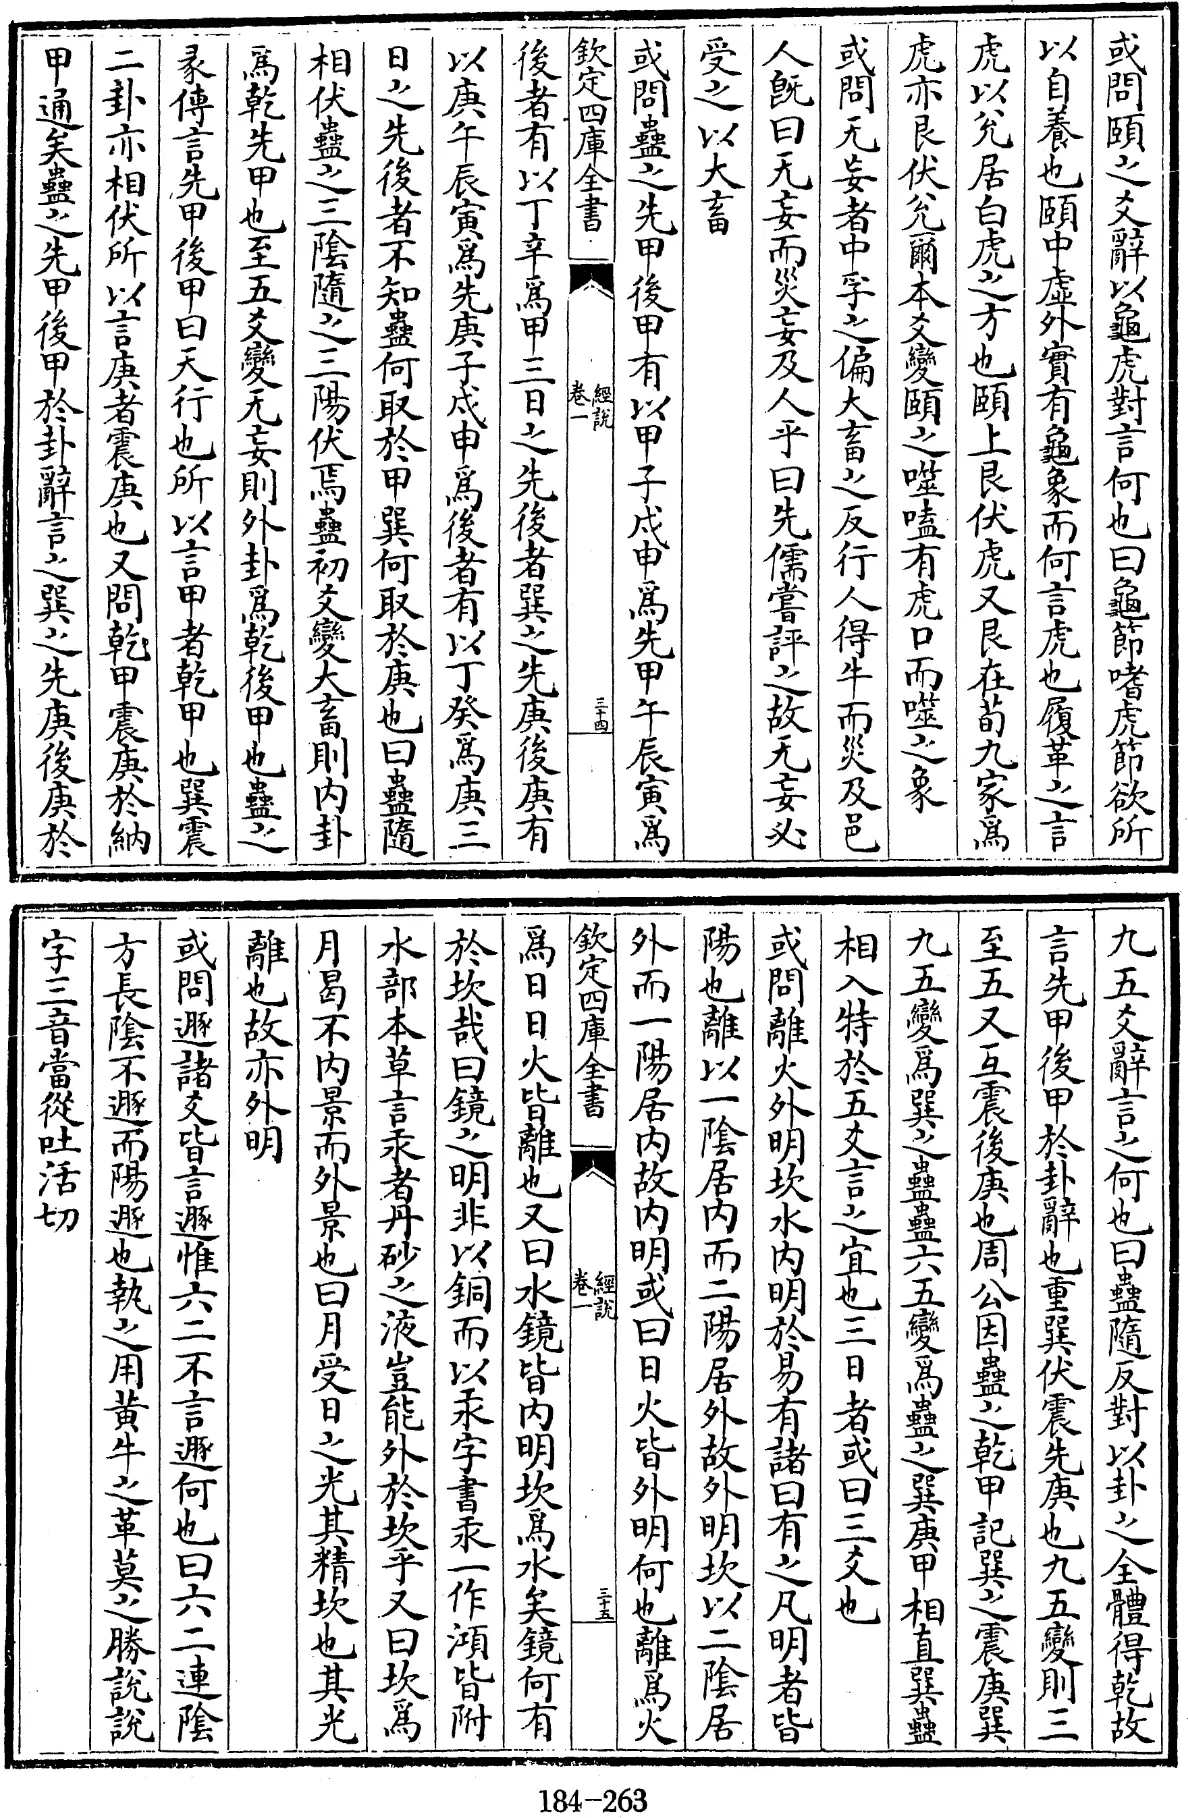 或問頤之爻辭以龜虎對言何也曰龜節嗜虎節欲所
以自養也頤中虛外實有龜象而何言虎也履革之言
虎以兊居白虎之方也頤上艮伏虎又艮在荀九家爲
虎亦艮伏兊爾本爻變頤之噬嗑有虎口而噬之象
或問无妄者中孚之偏大畜之反行人得牛而災及邑
人旣曰无妄而災妄及人乎曰先儒嘗評之故无妄必
受之以大畜
或問蠱之先甲後甲有以甲子戍申爲先甲午辰寅爲
欽定四庫全書
經說
卷一
三十四
後者有以丁辛爲甲三日之先後者巽之先庚後庚有
以庚午辰寅爲先庚子戍申爲後者有以丁癸爲庚三
日之先後者不知蠱何取於甲巽何取於庚也曰蠱隨
相伏蠱之三陰隨之三陽伏焉蠱初爻變大畜則内卦
爲乾先甲也至五爻變无妄則外卦爲乾後甲也蠱之
彖傳言先甲後甲曰天行也所以言甲者乾甲也巽震
二卦亦相伏所以言庚者震庚也又問乾甲震庚於納
甲通矣蠱之先甲後甲於卦辭言之巽之先庚後庚於
九五爻辭言之何也曰蠱隨反對以卦之全體得乾故
言先甲後甲於卦辭也重巽伏震先庚也九五變則三
至五又互震後庚也周公因蠱之乾甲記巽之震庚巽
九五變爲巽之蠱蠱六五變爲蠱之巽庚甲相直巽蠱
相入特於五爻言之宜也三日者或曰三爻也
或問離火外明坎水内明於易有諸曰有之凡明者皆
陽也離以一陰居内而二陽居外故外明坎以二陰居
外而一陽居内故内明或曰日火皆外明何也離爲火
欽定四庫全書
經說
卷一
三十五
爲日日火皆離也又曰水鏡皆内明坎爲水矣鏡何有
於坎哉曰鏡之明非以銅而以汞字書汞一作澒皆附
水部本草言汞者丹砂之液豈能外於坎乎又曰坎爲
月曷不内景而外景也曰月受日之光其精坎也其光
離也故亦外明
或問遯諸爻皆言遯惟六二不言遯何也曰六二連陰
方長陰不遯而陽遯也執之用黄牛之革莫之勝説說
字三音當從吐活切
184-263